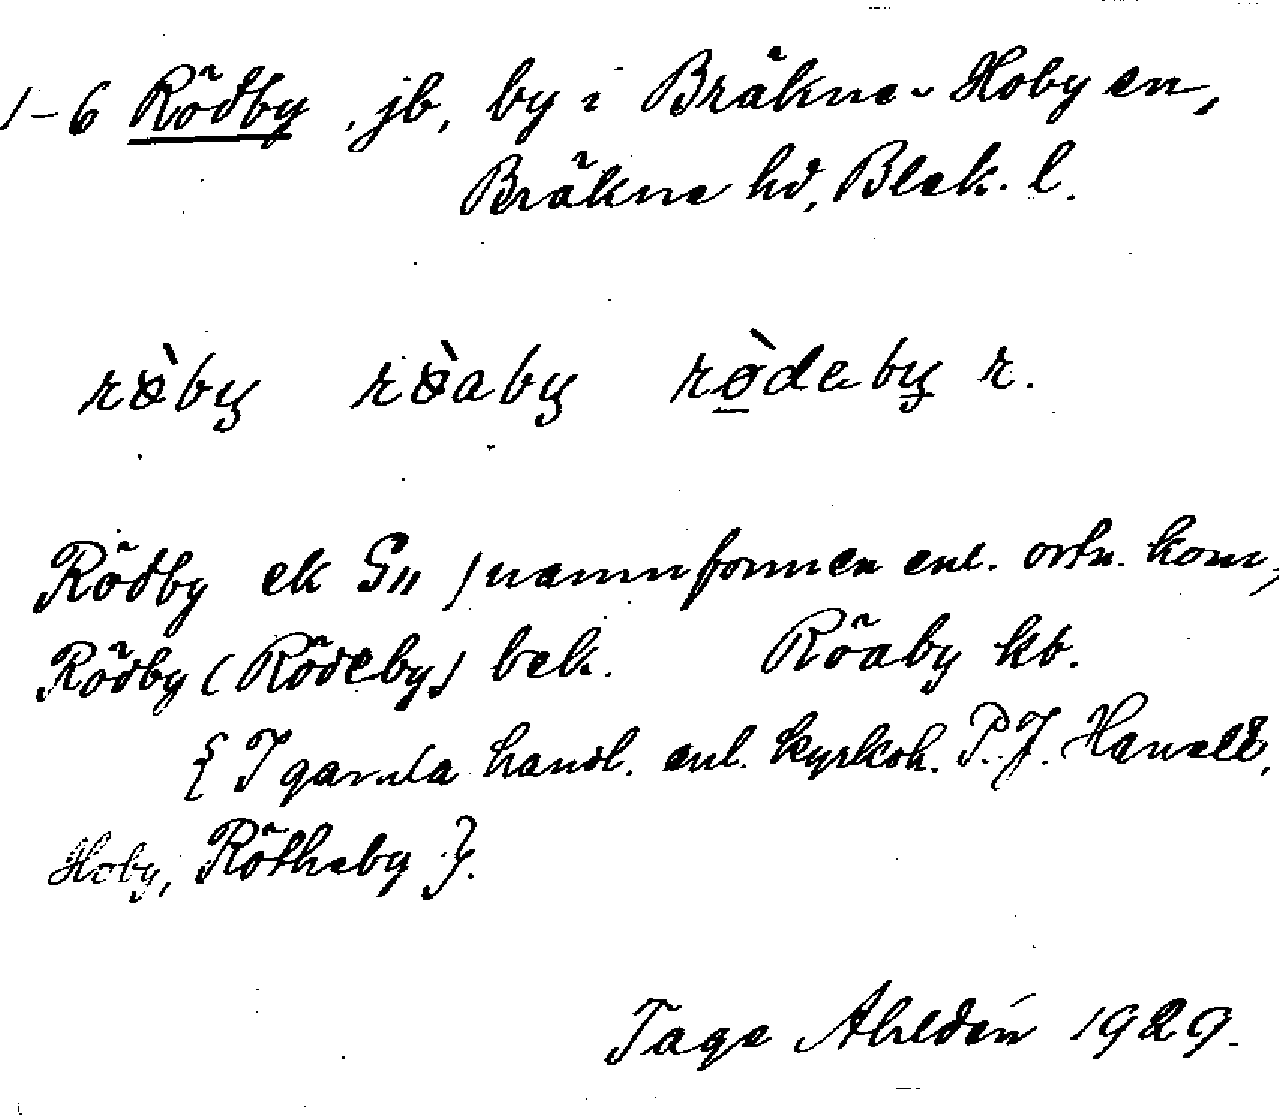 1-6 Rödby, jb, by i Bräkne-Hoby sn,
Bräkne hd, Blek. l.
rø̀by rø̀aby rø̀deby r.
Rödby ek G,, /namnformen enl. ortn. kom,
Rödby (Rödeby) bek. Röaby kb.
{I gamla handl. enl. kyrkoh. P. J. Hawell,
Hoby, Rötheby}.
Tage Ahldén 1929.